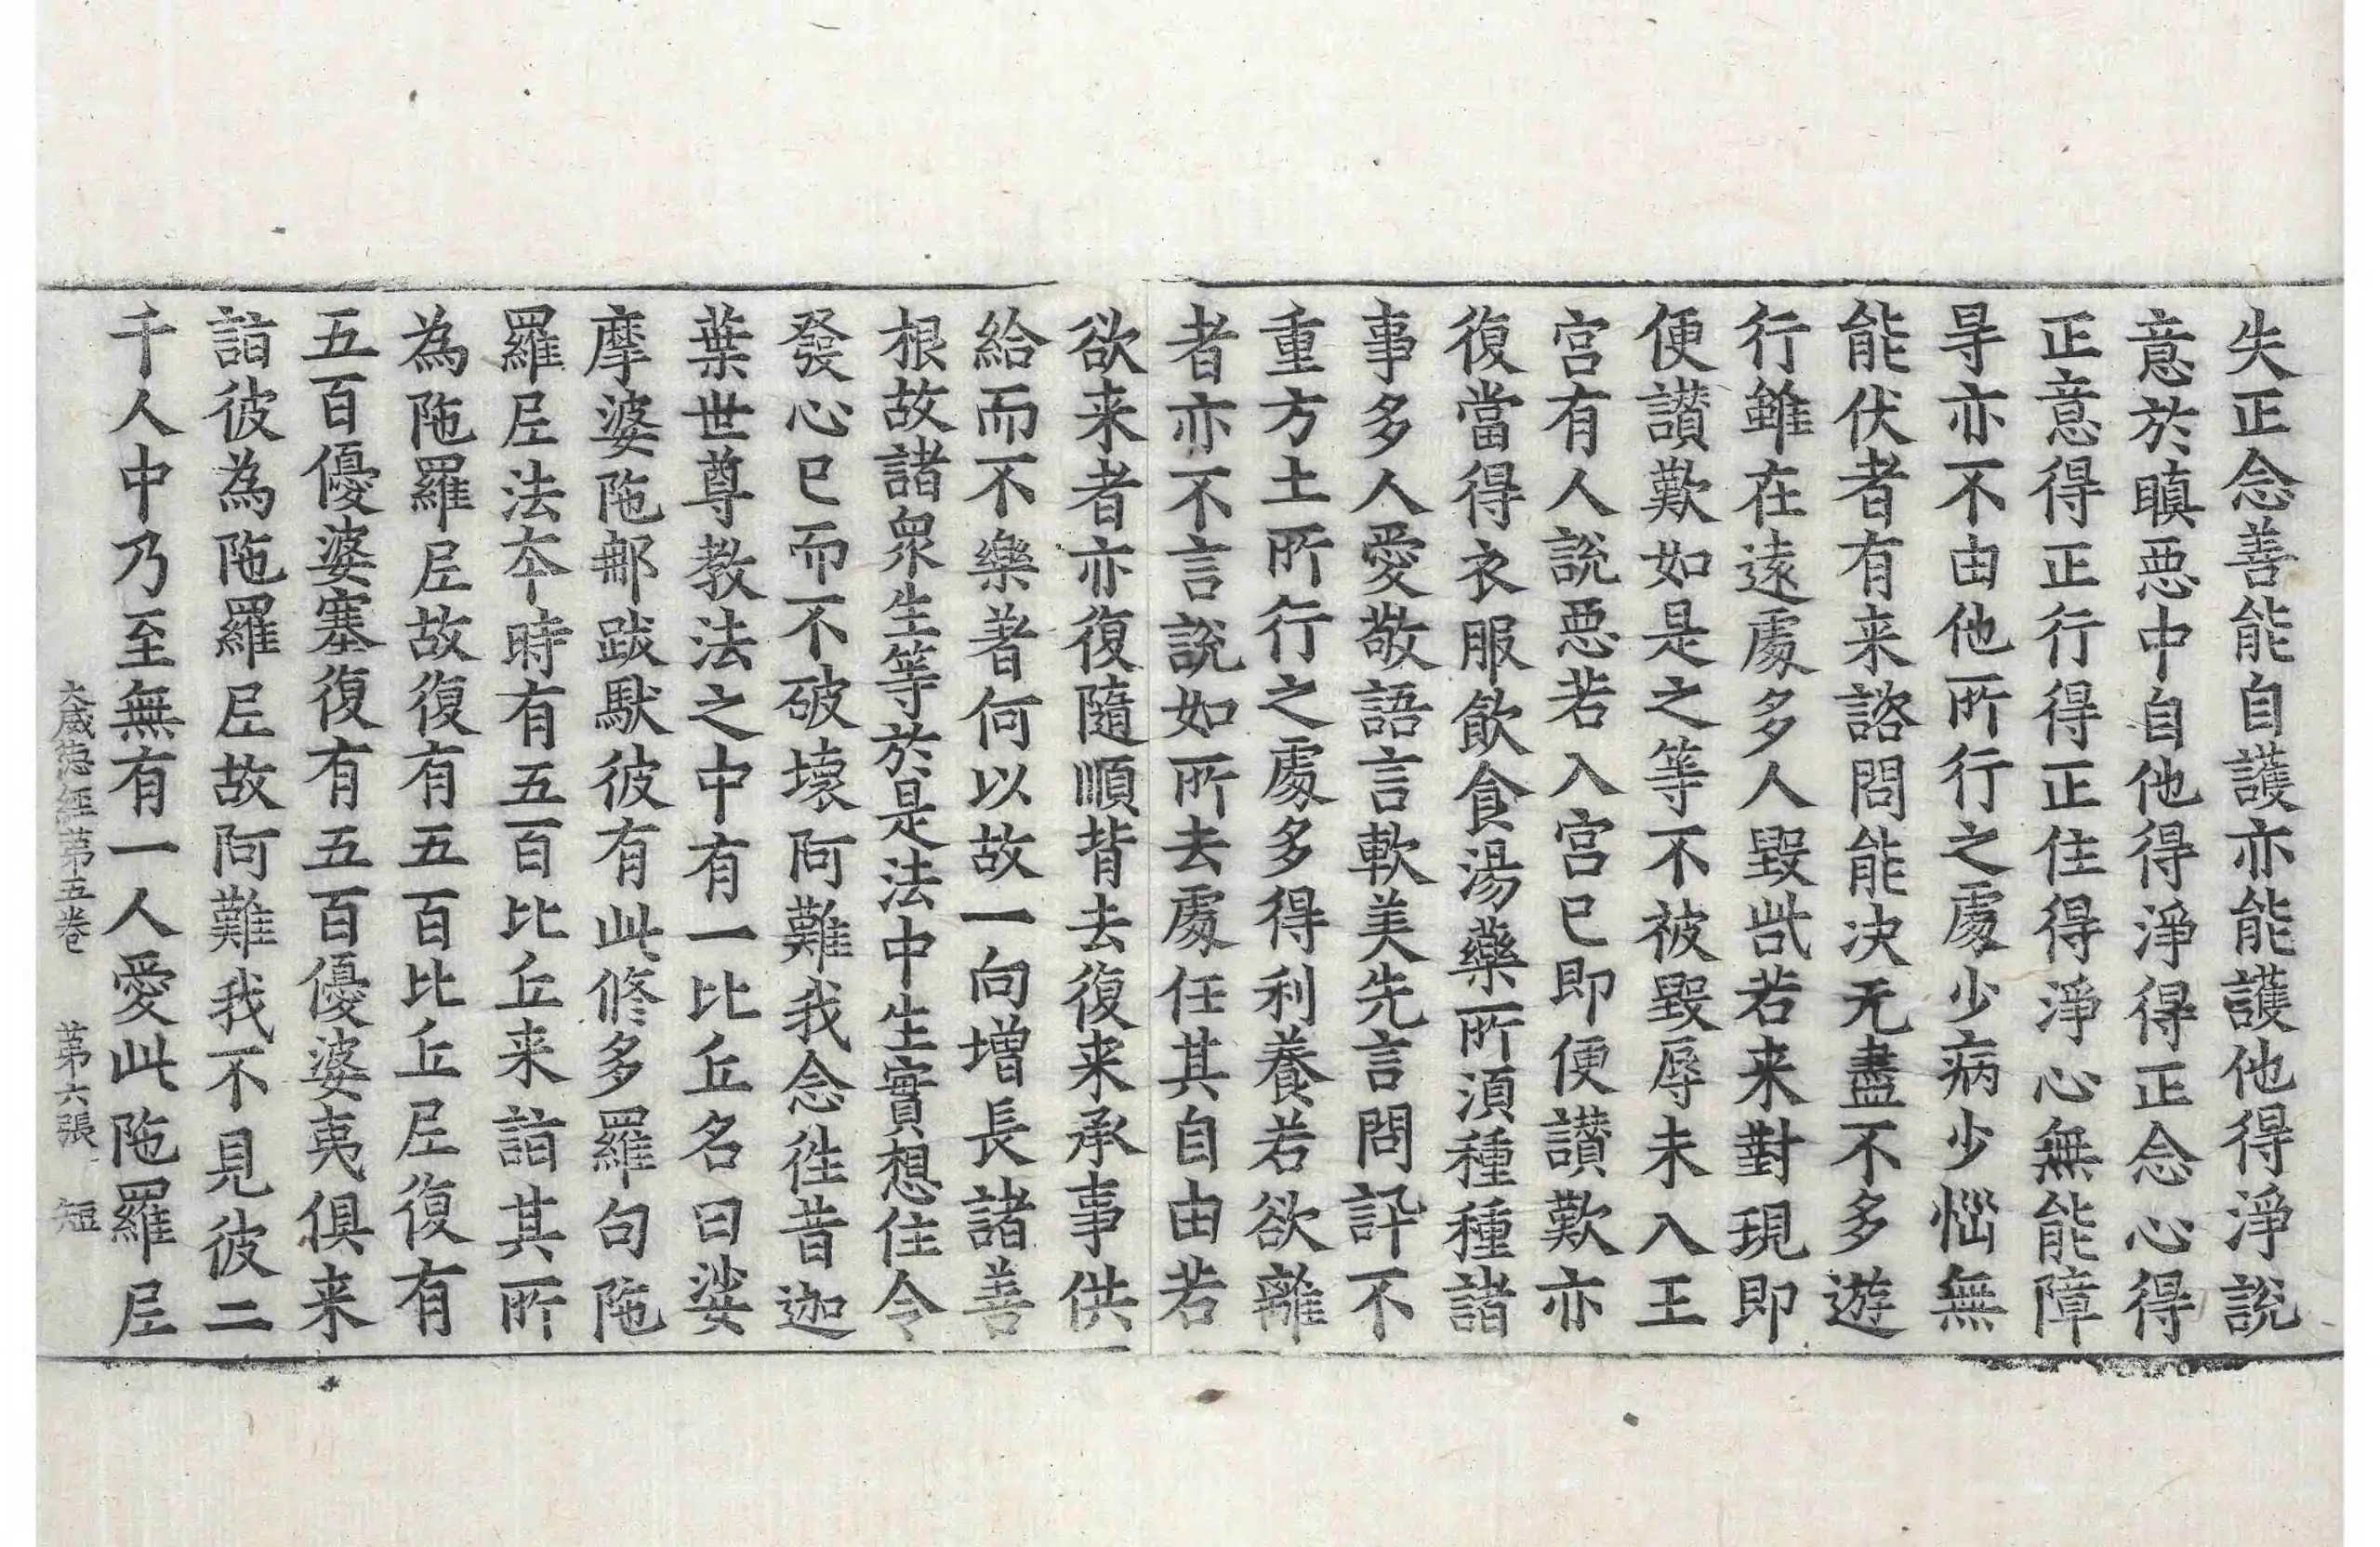 失正念善能自護亦能護他得淨說
意於瞋惡中自他得淨得正念心得
正意得正行得正住得淨心無能障
㝵亦不由他所行之處少病少惱無
能伏者有来諮問能决无盡不多遊
行雖在遠處多人毀呰若来對現即
便讃歎如是之等不被毀辱未入王
宮有人說惡若入宮已即便讃歎亦
復當得衣服飲食湯藥所須種種諸
事多人愛敬語言軟美先言問訊不
重方土所行之處多得利養若欲離
者亦不言說如所去處任其自由若
欲来者亦復隨順背去復来承事供
給而不樂著何以故一向增長諸善
根故諸衆生等於是法中生實想住令
發心已而不破壞阿難我念往昔迦
葉世尊教法之中有一比丘名曰娑
摩婆陁那跋馱彼有此修多羅句陁
羅尼法夲時有五百比丘来詣其所
為陁羅尼故復有五百比丘尼復有
五百優婆塞復有五百優婆夷俱来
詣彼為陁羅尼故阿難我不見彼二
千人中乃至無有一人愛此陁羅尼
大威德經第五卷 第六張 短